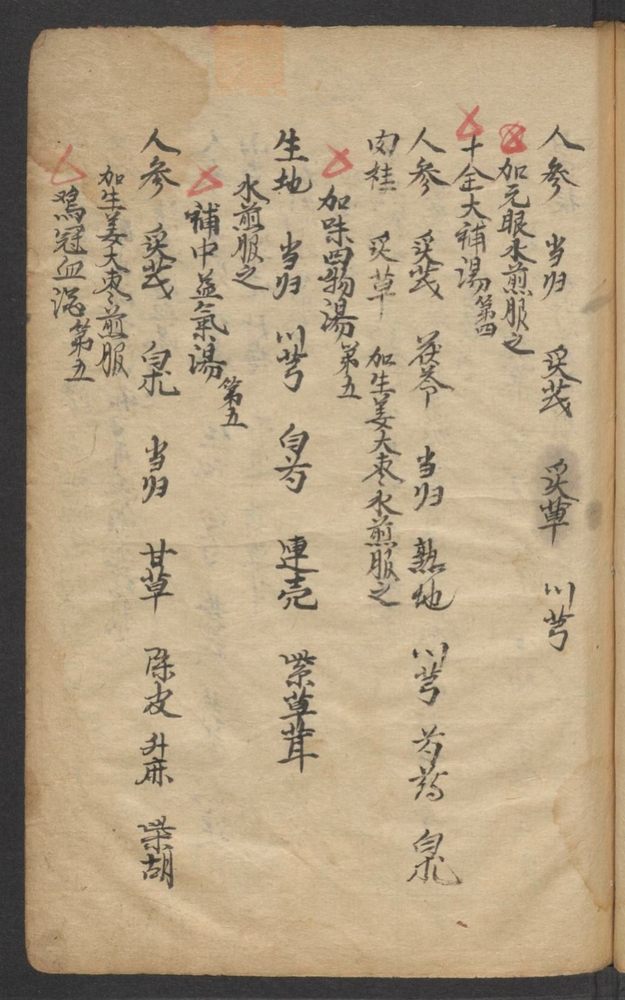 人参 当归 炙芪 炙草 川芎
加元眼水煎服之
十全大補湯第四
人参 炙芪 茯苓 当归 熟地 川芎 芍药 白朮
肉桂 炙草 加生姜大枣水煎服之
加味四物湯第五
生地 当归 川芎 白芍 連壳 紫草茸
水煎服之
補中益氣湯第五
人参 炙芪 白朮 当归 甘草 陈皮 升麻 柴胡
加生姜大枣煎服
鸡冠血湯第五